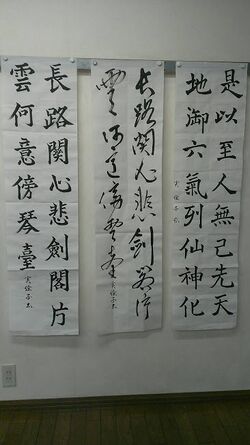 是以至人無己先天
地御六氣列仙神化
長路關心悲劍閣片
雲何意傍琴臺
長路關心悲劍閣片
雲何意傍琴臺